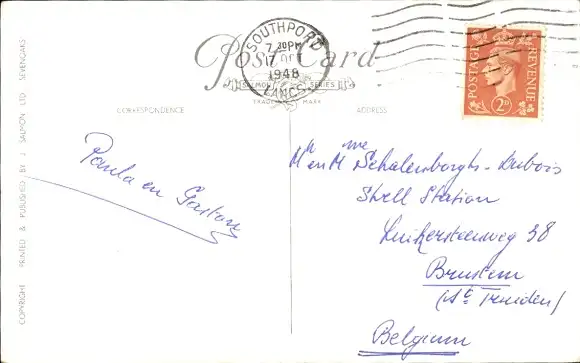 SOUTHPORT
7.30PM
1948
LANCS
Post Card
SALMON SERIES
TRADE MARK
POSTAGE REVENUE
2D
CORRESPONDENCE
ADDRESS
COPYRIGHT PRINTED & PUBLISHED BY J. SALMON LTD SEVENOAKS
Paula en Gaston
Mr en Mme Schalenborghs-Dubois
Shell Station
Luikersteenweg 38
Brustem
(St Truiden)
Belgium